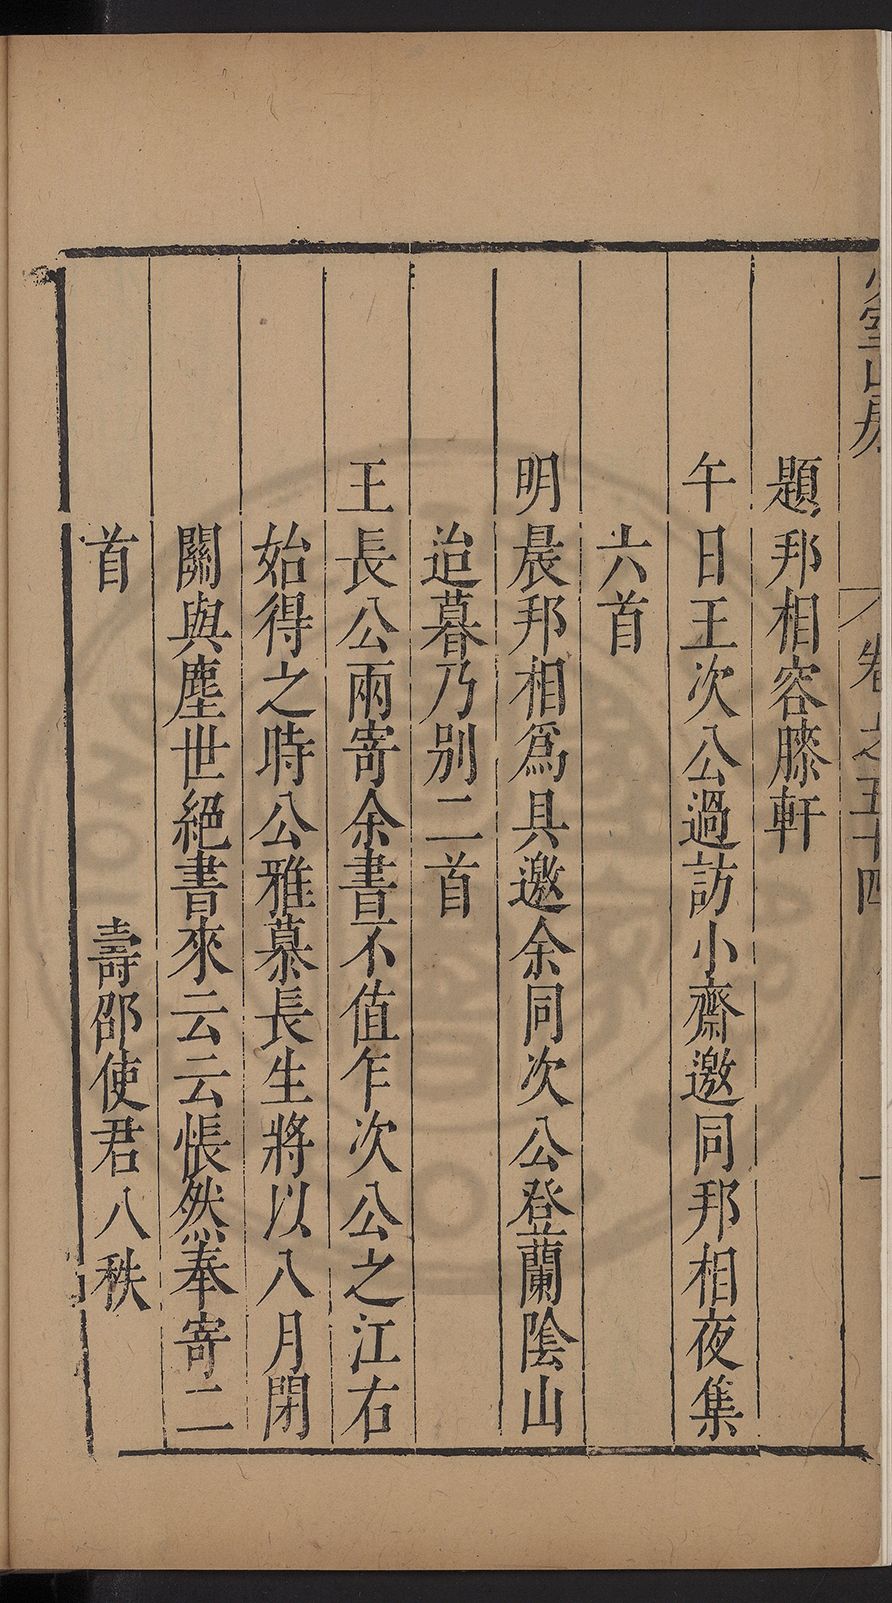 少室山房 卷之五十四 一
題邦相容膝軒
午日王次公過訪小齋邀同邦相夜集
六首
明晨邦相爲具邀余同次公登蘭陰山
迨暮乃别二首
王長公兩寄余書不值乍次公之江右
始得之時公雅慕長生將以八月閉
關與塵世絕書來云云悵然奉寄二
首 壽邵使君八秩